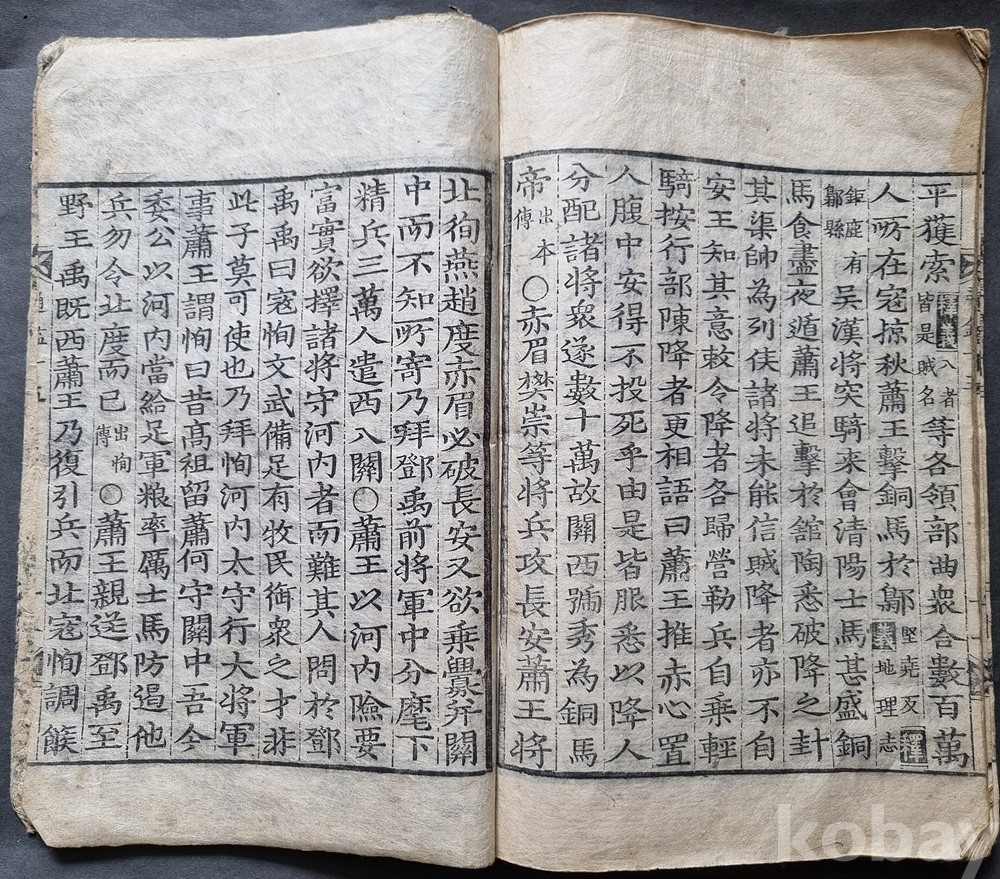 平獲索八者皆是賊名等各領部曲衆合數百萬
人所在寇掠秋蕭王擊銅馬於鄡堅堯反地理志
鉅鹿有鄡縣吳漢將突騎来會清陽士馬甚盛銅
馬食盡夜遁蕭王追擊於舘陶悉破降之封
其渠帥為列侯諸將未能信賊降者亦不自
安王知其意敕令降者各歸營勒兵自乘輕
騎按行部陳降者更相語曰蕭王推赤心置
人腹中安得不投死乎由是皆服悉以降人
分配諸將衆遂數十萬故關西號秀為銅馬
帝出本傳〇赤眉樊崇等將兵攻長安蕭王將
北徇燕趙度赤眉必破長安又欲乘釁并關
中而不知所寄乃拜鄧禹前將軍中分麾下
精兵三萬人遣西入關〇蕭王以河內險要
富實欲擇諸將守河內者而難其人問於鄧
禹禹曰寇恂文武備足有牧民御衆之才非
此子莫可使也乃拜恂河內太守行大將軍
事蕭王謂恂曰昔高祖留蕭何守關中吾今
委公以河內當給足軍粮率厲士馬防遏他
兵勿令北度而已出恂傳〇蕭王親送鄧禹至
野王禹既西蕭王乃復引兵而北寇恂調餱
kobay